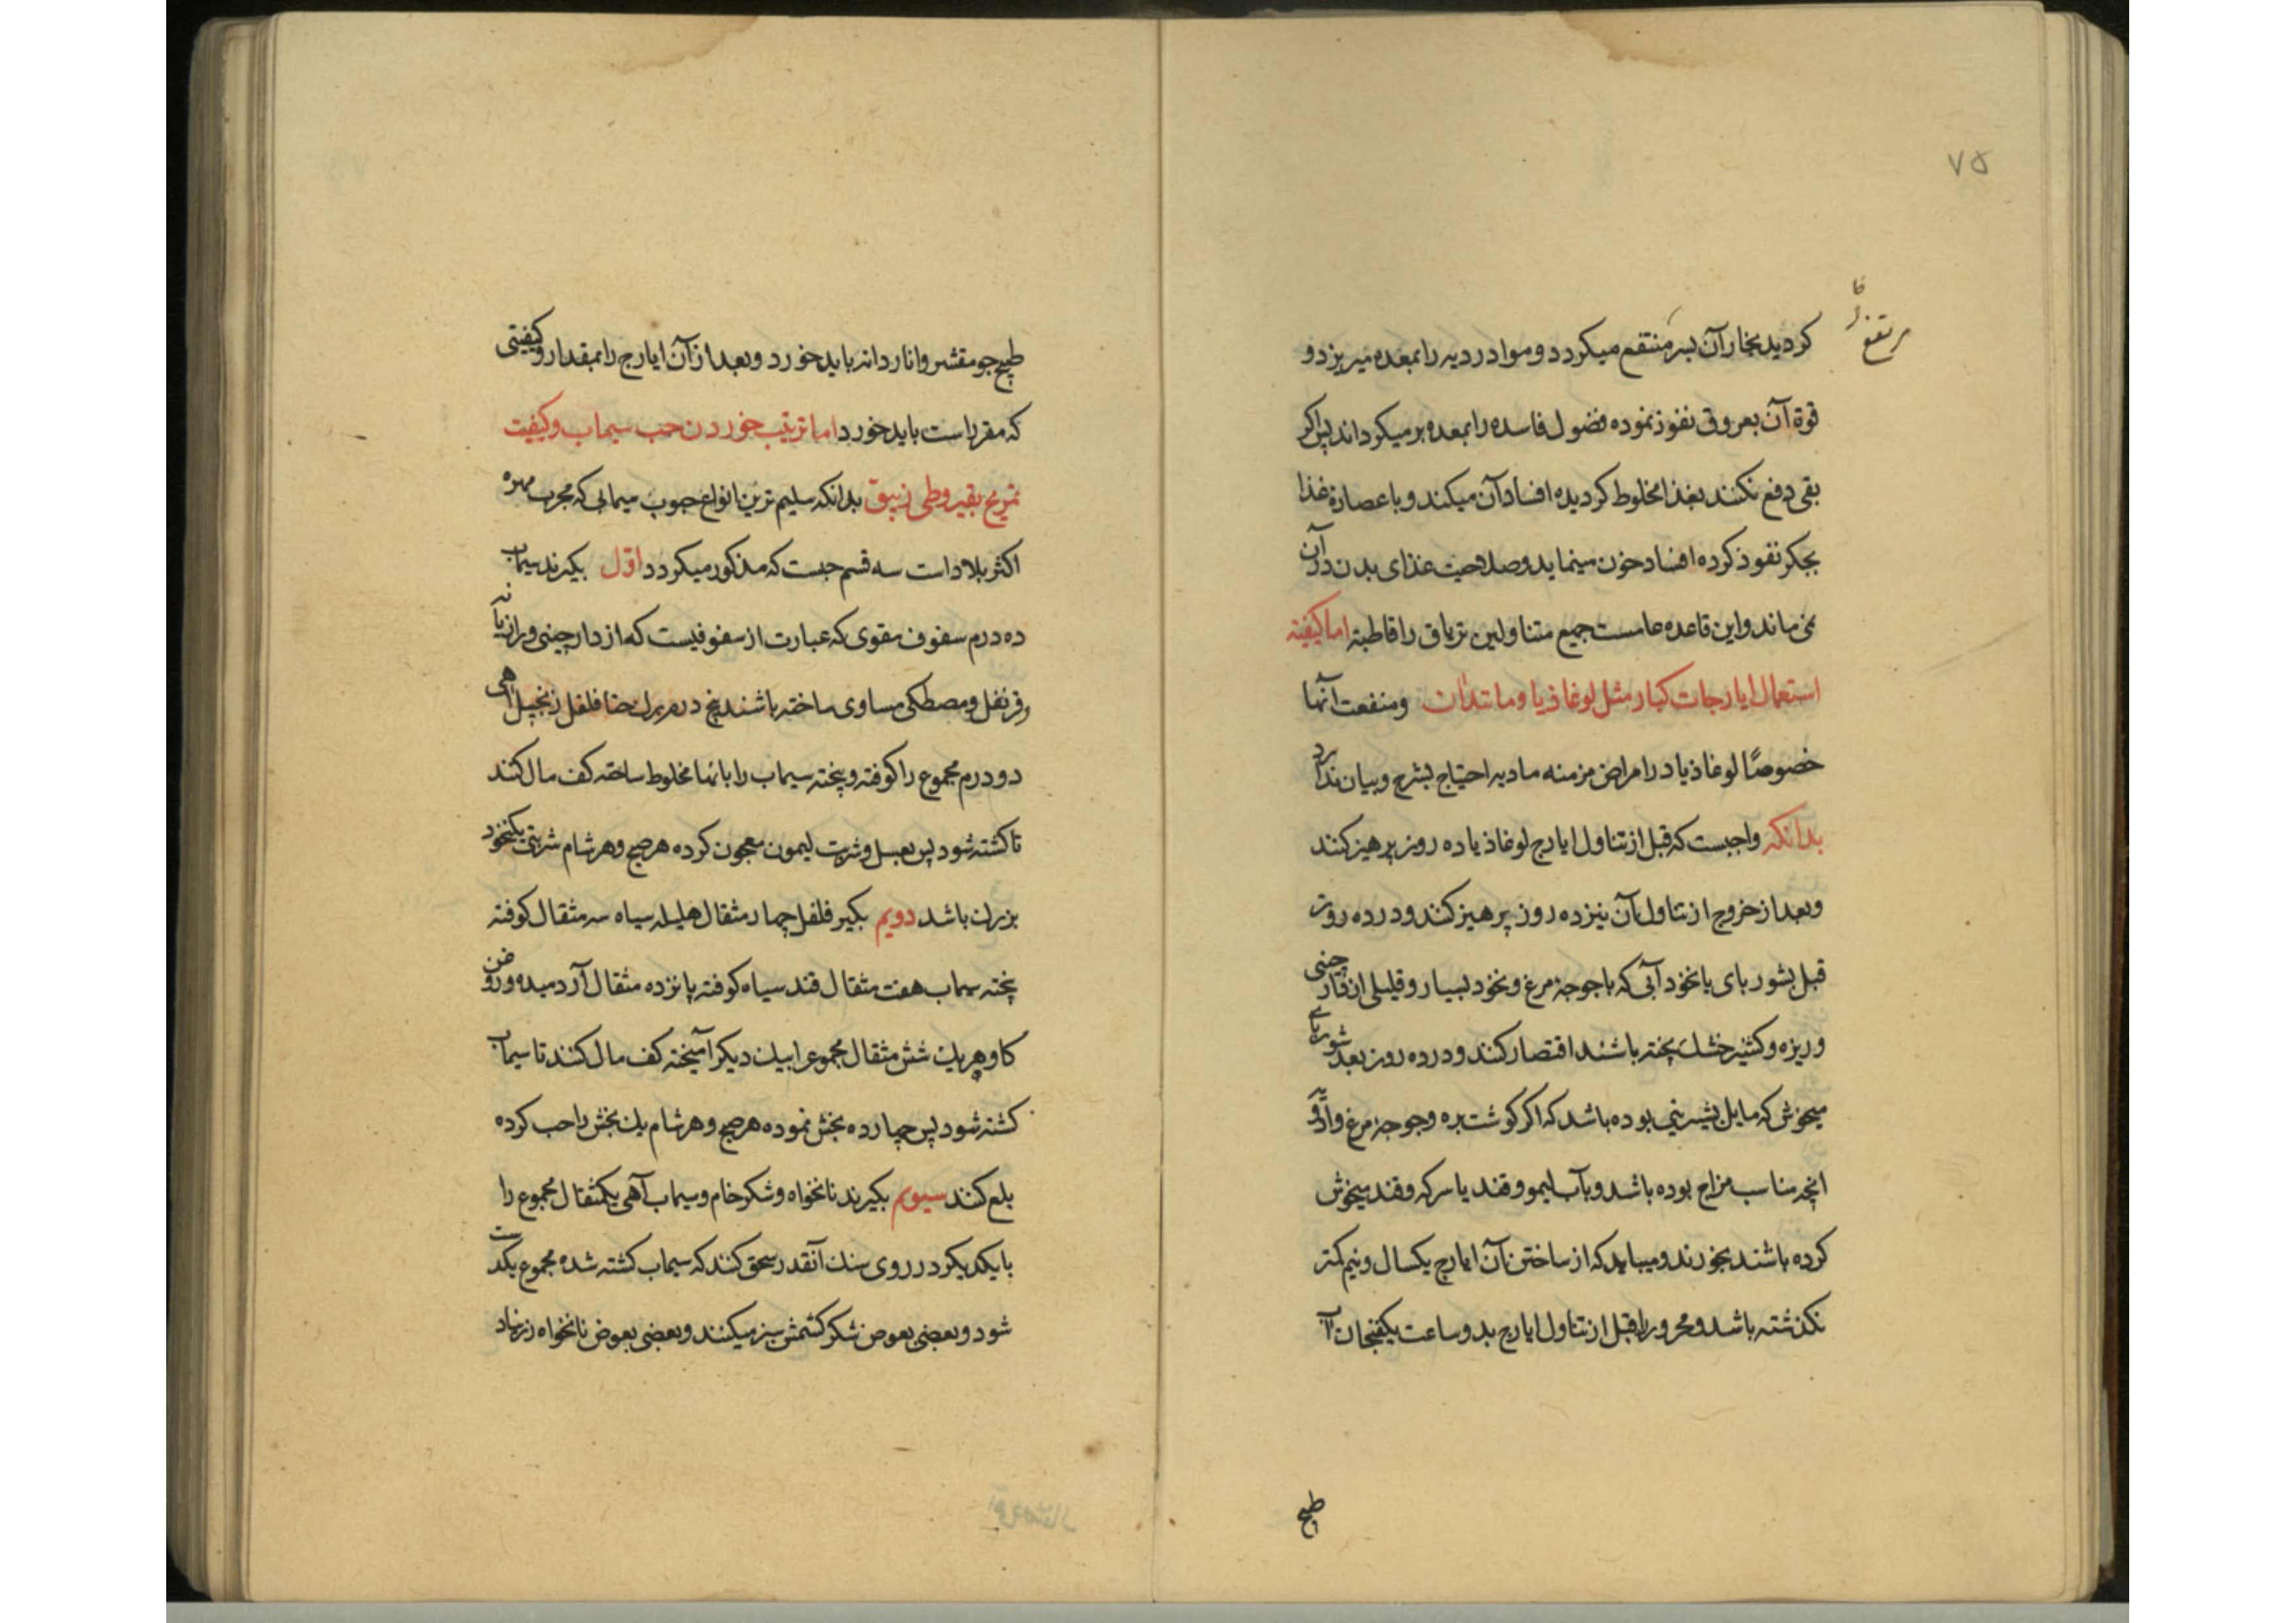 ۷۵
مرتفع
کردید بخار آن بسر منتقع میکردد و مواد ردیه را بمعده میریزد و
قوة آن بعروق نفوذ نموده فضول فاسده را بمعده برمیکرداند پس اکر
بقی دفع نکنند بغذا مخلوط کردیده افساد آن میکند و با عصارة غذا
بجکر نفوذ کرده افساد خون مینماید و صلاحیت غذای بدن در آن
نمی ماند و این قاعده عامست جمیع متناولین تریاق را قاطبة اما کیفیته
استعمال ایارجات کبار مثل لوغاذیا و مانند آن و منفعت آنها
خصوصًا لوغاذیا در امراض مزمنه مادیه احتیاج بشرح و بیان ندارد
بدانکه واجبست که قبل از تناول ایارج لوغاذیا ده روز پرهیز کنند
و بعد از خروج از تناول آن نیز ده روز پرهیز کنند و در ده روز
قبل بشوربای یا نخود آبی که با جوجهٔ مرغ و نخود بسیار و قلیلی از دارچینی
و زیره و کشنیز خشک پخته باشند اقتصار کنند و در ده روز بعد شوربای
میخوش که مایل بشیرینی بوده باشد که اکر کوشت بره و جوجهٔ مرغ و
انچه مناسب مزاج بوده باشد و بآب لیمو و قند یا سرکه و قند میخوش
کرده باشند بخورند و میباید که از ساختن آن ایارج یکسال و نیم کمتر
نکذشته باشد و محرور را قبل از تناول ایارج بدو ساعت یکفنجان آب
طبیخ
طبیخ جو مقشر و انار دانه باید خورد و بعد از آن ایارج را بمقدار و کیفیتی
که مقرر است باید خورد اما ترتیب خوردن حب سیماب و کیفیت
تمریخ بقیروطی زیبق بدانکه سلیم ترین انواع حبوب سیمابی که مجرب مهره
اکثر بلاد است سه قسم حبست که مذکور میکردد اول بکیرند سیماب
ده درم سفوف مقوی که عبارت از سفوفیست که از دارچینی و رازیانه
و قرنفل و مصطکی مساوی ساخته باشند پنج درم برک حنا فلفل زنجبیل
دو درم مجموع را کوفته و پخته سیماب را بانها مخلوط ساخته کف مال کنند
تا کشته شود پس بعسل و شربت لیمون معجون کرده هر صبح و هر شام شربتی یکنخود
بزرک باشد دویم بکیر فلفل چهار مثقال هلیله سیاه سه مثقال کوفته
پخته سیماب هفت مثقال قند سیاه کوفته پانزده مثقال آرد میده و روغن
کاو هر یک شش مثقال مجموع را بیک دیکر آمیخته کف مال کنند تا سیماب
کشته شود پس چهارده بخش نموده هر صبح و هر شام یک بخش را حب کرده
بلع کنند سیویم بکیرند نانخواه و شکر خام و سیماب آهی یکمثقال مجموع را
با یکدیکر در روی سنک آنقدر سحق کنند که سیماب کشته شده مجموع یکدست
شود و بعضی بعوض شکر کشمش سبز میکنند و بعضی بعوض نانخواه زرنباد